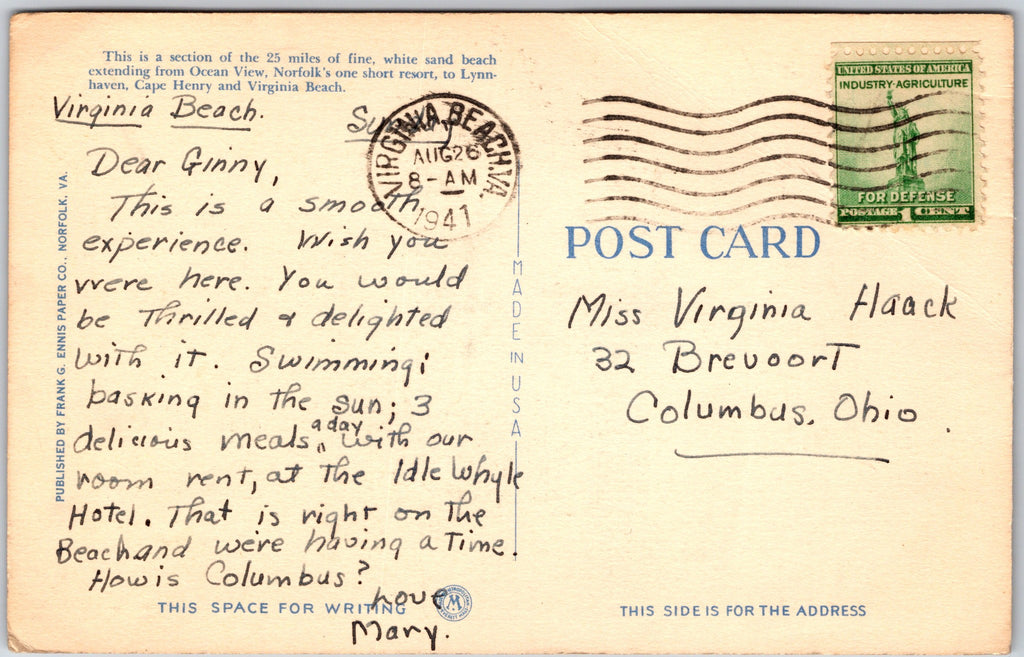 This is a section of the 25 miles of fine, white sand beach
extending from Ocean View, Norfolk's one short resort, to Lynn-
haven, Cape Henry and Virginia Beach.
Virginia Beach.
Sunday
Dear Ginny,
This is a smooth
experience. Wish you
were here. You would
be thrilled & delighted
with it. Swimming;
basking in the sun; 3
delicious meals a day with our
room rent, at the Idle Whyle
Hotel. That is right on the
Beach and were having a time.
How is Columbus?
Love
Mary.
THIS SPACE FOR WRITING
PUBLISHED BY FRANK G. ENNIS PAPER CO., NORFOLK, VA.
MADE IN USA
VIRGINIA BEACH, VA.
AUG 26
8 - AM
1941
UNITED STATES OF AMERICA
INDUSTRY·AGRICULTURE
FOR DEFENSE
POSTAGE 1 CENT
POST CARD
Miss Virginia Haack
32 Brevoort
Columbus, Ohio.
THIS SIDE IS FOR THE ADDRESS